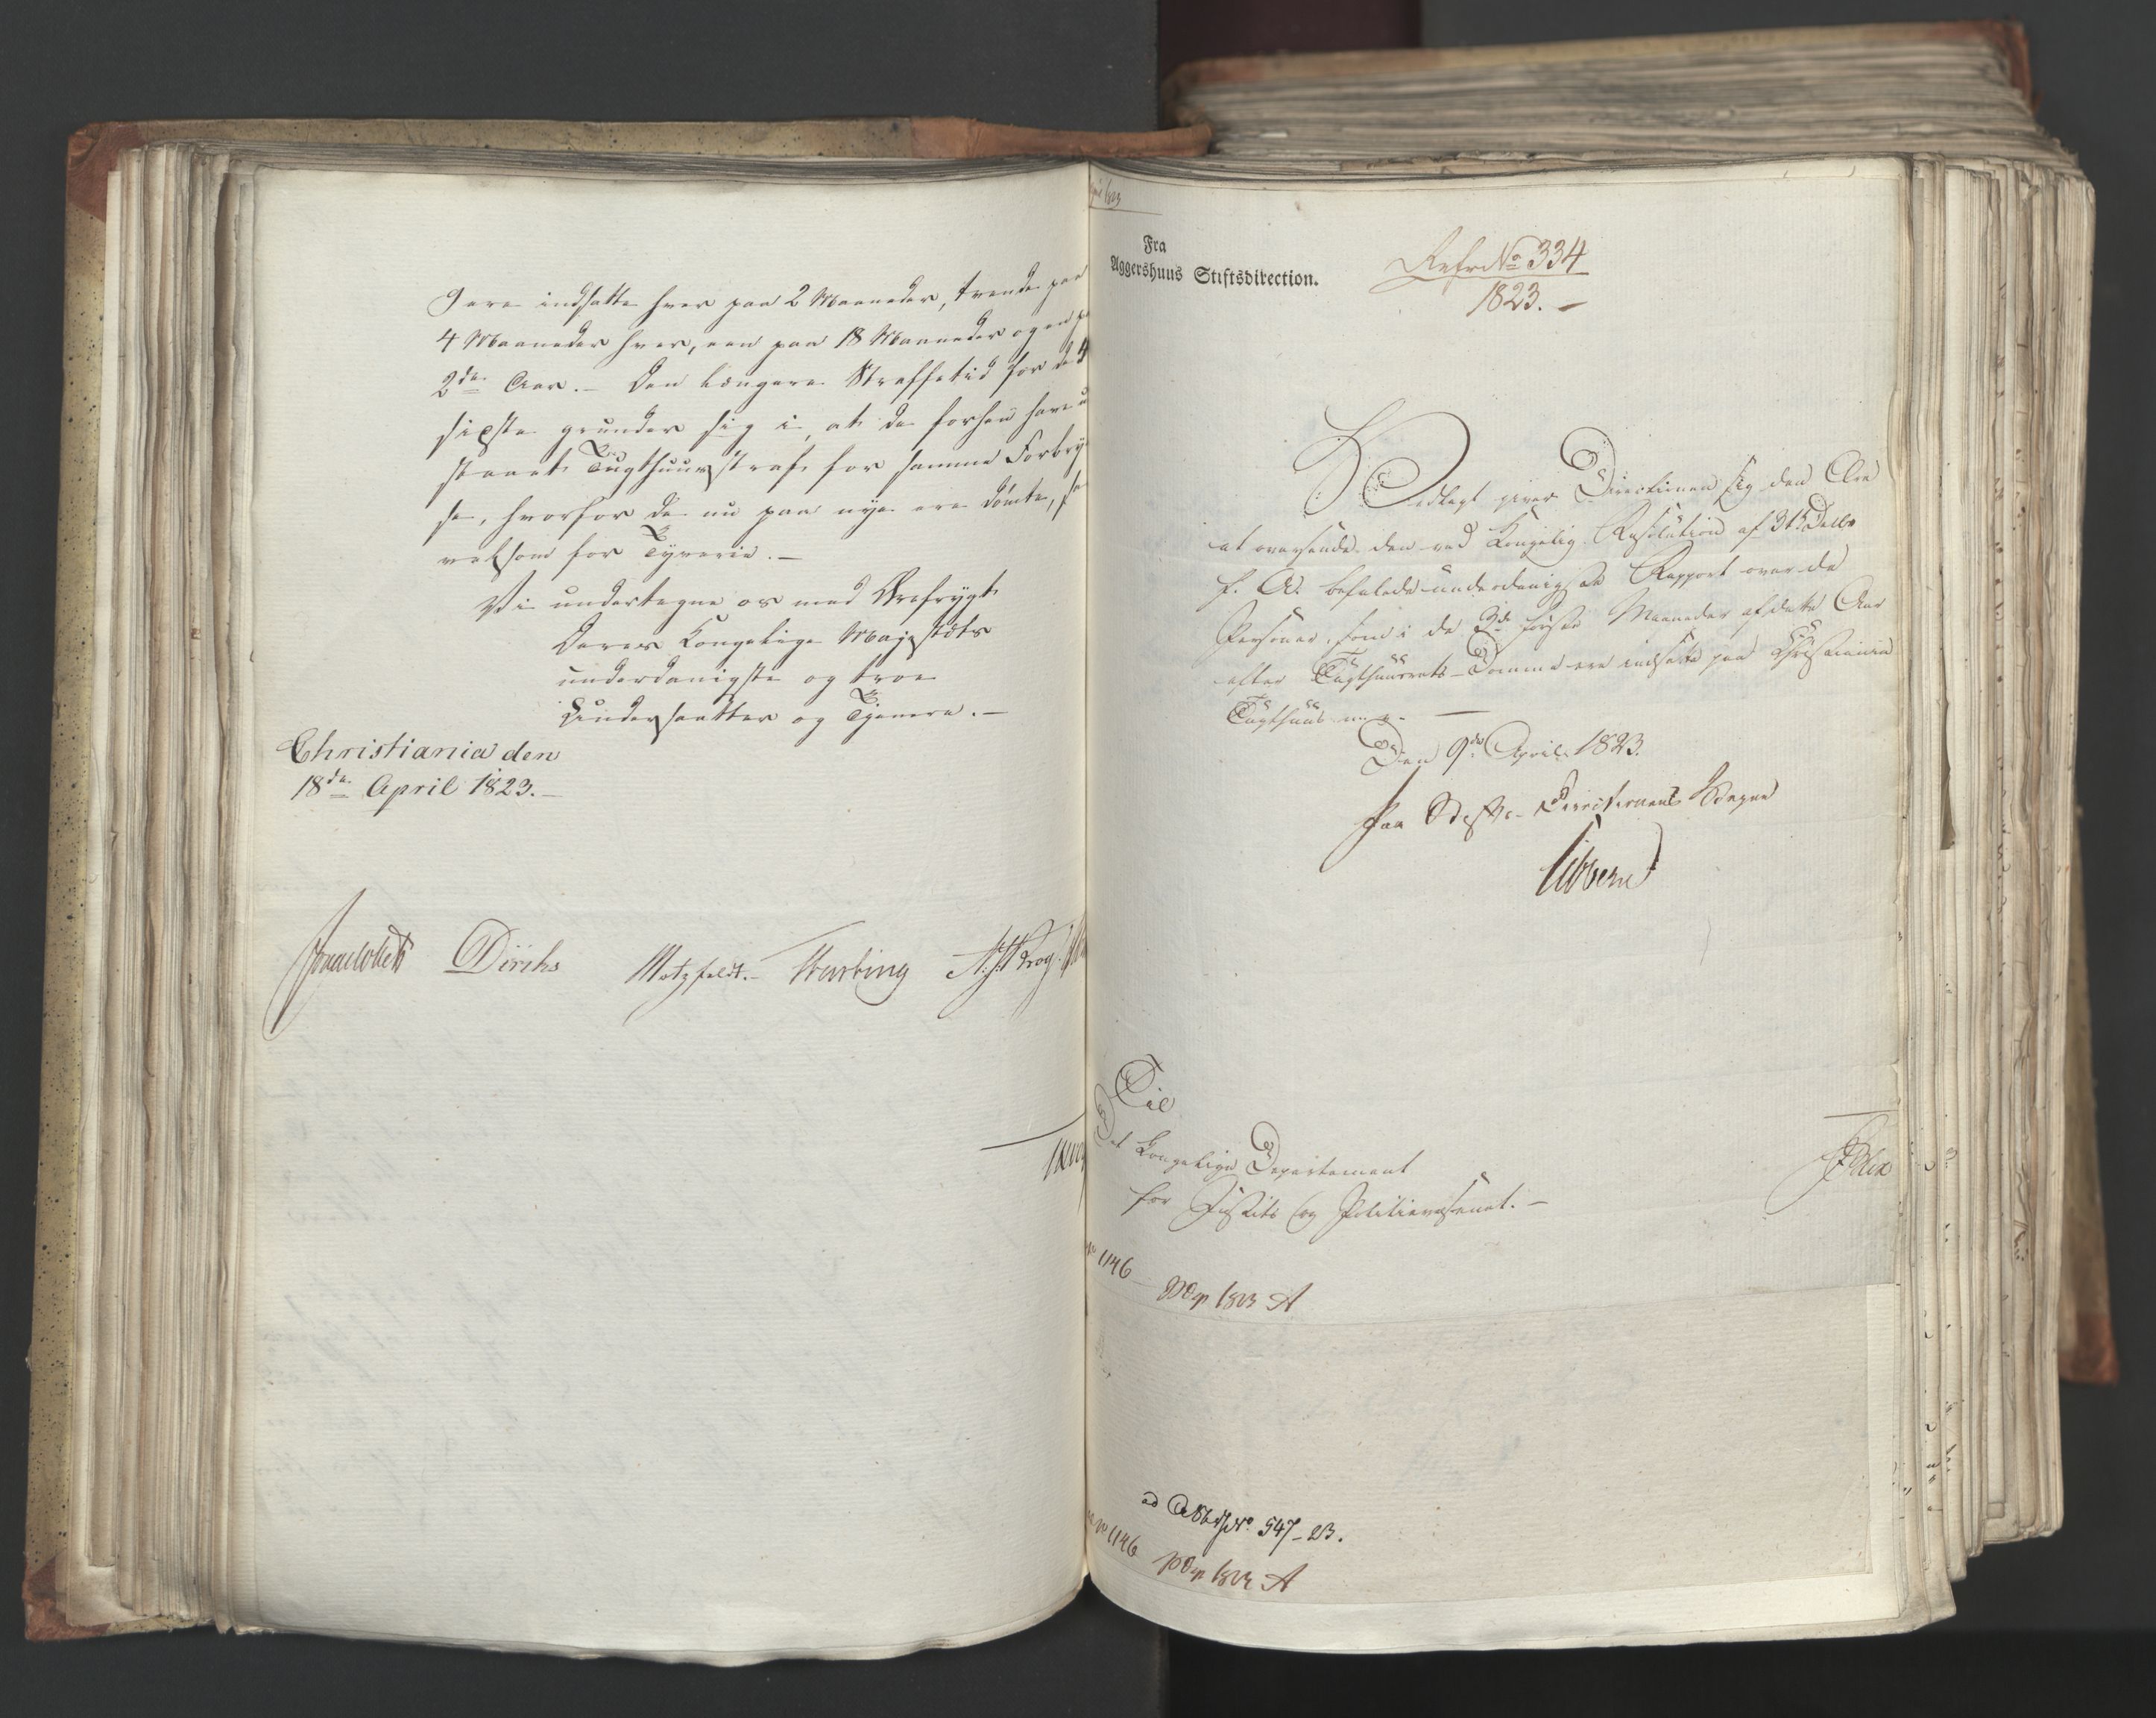 9 ere indsatte hver paa 2 Maaneder, trende paa
4 Maaneder hver, een paa 18 Maaneder og en p
2de Aar. – Den længere Straffetid for de 4
sidste grunder sig i, at de forhen have u
staaet Tugthuusstraf for samme Forbry
se, hvorfor de nu paa nye ere dömte,
velsom for Tyverie. –
Vi undertegne os med Ærefrygt
Deres Kongelige Majestæts
underdanigste og troe
Undersaatter og Tjenere. –
Christiania den
18de April 1823. –
Sommerhielm Diriks Motzfeldt. – Krog
1823
Fra
Aggershuus Stiftsdirection.
Refr No 334
1823. –
Vedlagt giver Directionen sig den Ære
at oversende den ved Kongelig Resolution af 31 Decbr
f. A. befalede underdanigste Rapport over de
Personer, som i de 3de første Maaneder af dette Aar
efter Tugthuusrets-Domme ere indsatte paa Christiania
Tugthuus
Den 9de April 1823.
Paa Stifts-Directionens Vegne
Sibbern
Til
Det Kongelige Departement
for Justits og Politievæsenet. –
No 1146
PDep 1823 A
ad No 547-23.
No 1146 PDep 1823 A